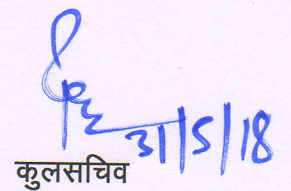 31/5/18
कुलसचिव